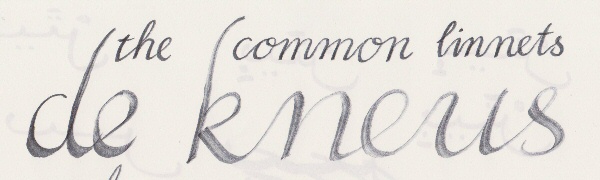 the common linnets
de kneus